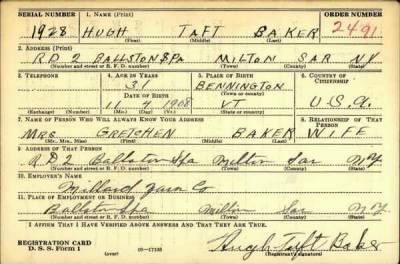 SERIAL NUMBER 1. NAME (Print) ORDER NUMBER
1928 HUGH TAFT BAKER 2491
(First) (Middle) (Last)
2. ADDRESS (Print)
R.D. 2 BALLSTON SPA MILTON SAR NY.
(Number and street or R. F. D. number) (Town) (County) (State)
3. TELEPHONE 4. AGE IN YEARS 5. PLACE OF BIRTH 6. COUNTRY OF CITIZENSHIP
31 BENNINGTON
DATE OF BIRTH (Town or county)
4 1908 VT U.S.A.
(Exchange) (Number) (Mo.) (Day) (Yr.) (State or country)
7. NAME OF PERSON WHO WILL ALWAYS KNOW YOUR ADDRESS 8. RELATIONSHIP OF THAT PERSON
MRS GRETCHEN BAKER WIFE
(Mr., Mrs., Miss) (First) (Middle) (Last)
9. ADDRESS OF THAT PERSON
R.D 2 Ballston Spa Milton Sar NY
(Number and street or R. F. D. number) (Town) (County) (State)
10. EMPLOYER'S NAME
Millard Yarn Co
11. PLACE OF EMPLOYMENT OR BUSINESS
Ballston Spa Milton Sar NY
(Number and street or R. F. D. number) (Town) (County) (State)
I AFFIRM THAT I HAVE VERIFIED ABOVE ANSWERS AND THAT THEY ARE TRUE.
REGISTRATION CARD
D. S. S. Form 1 (over) 16—17105 Hugh Taft Baker
(Registrant's signature)